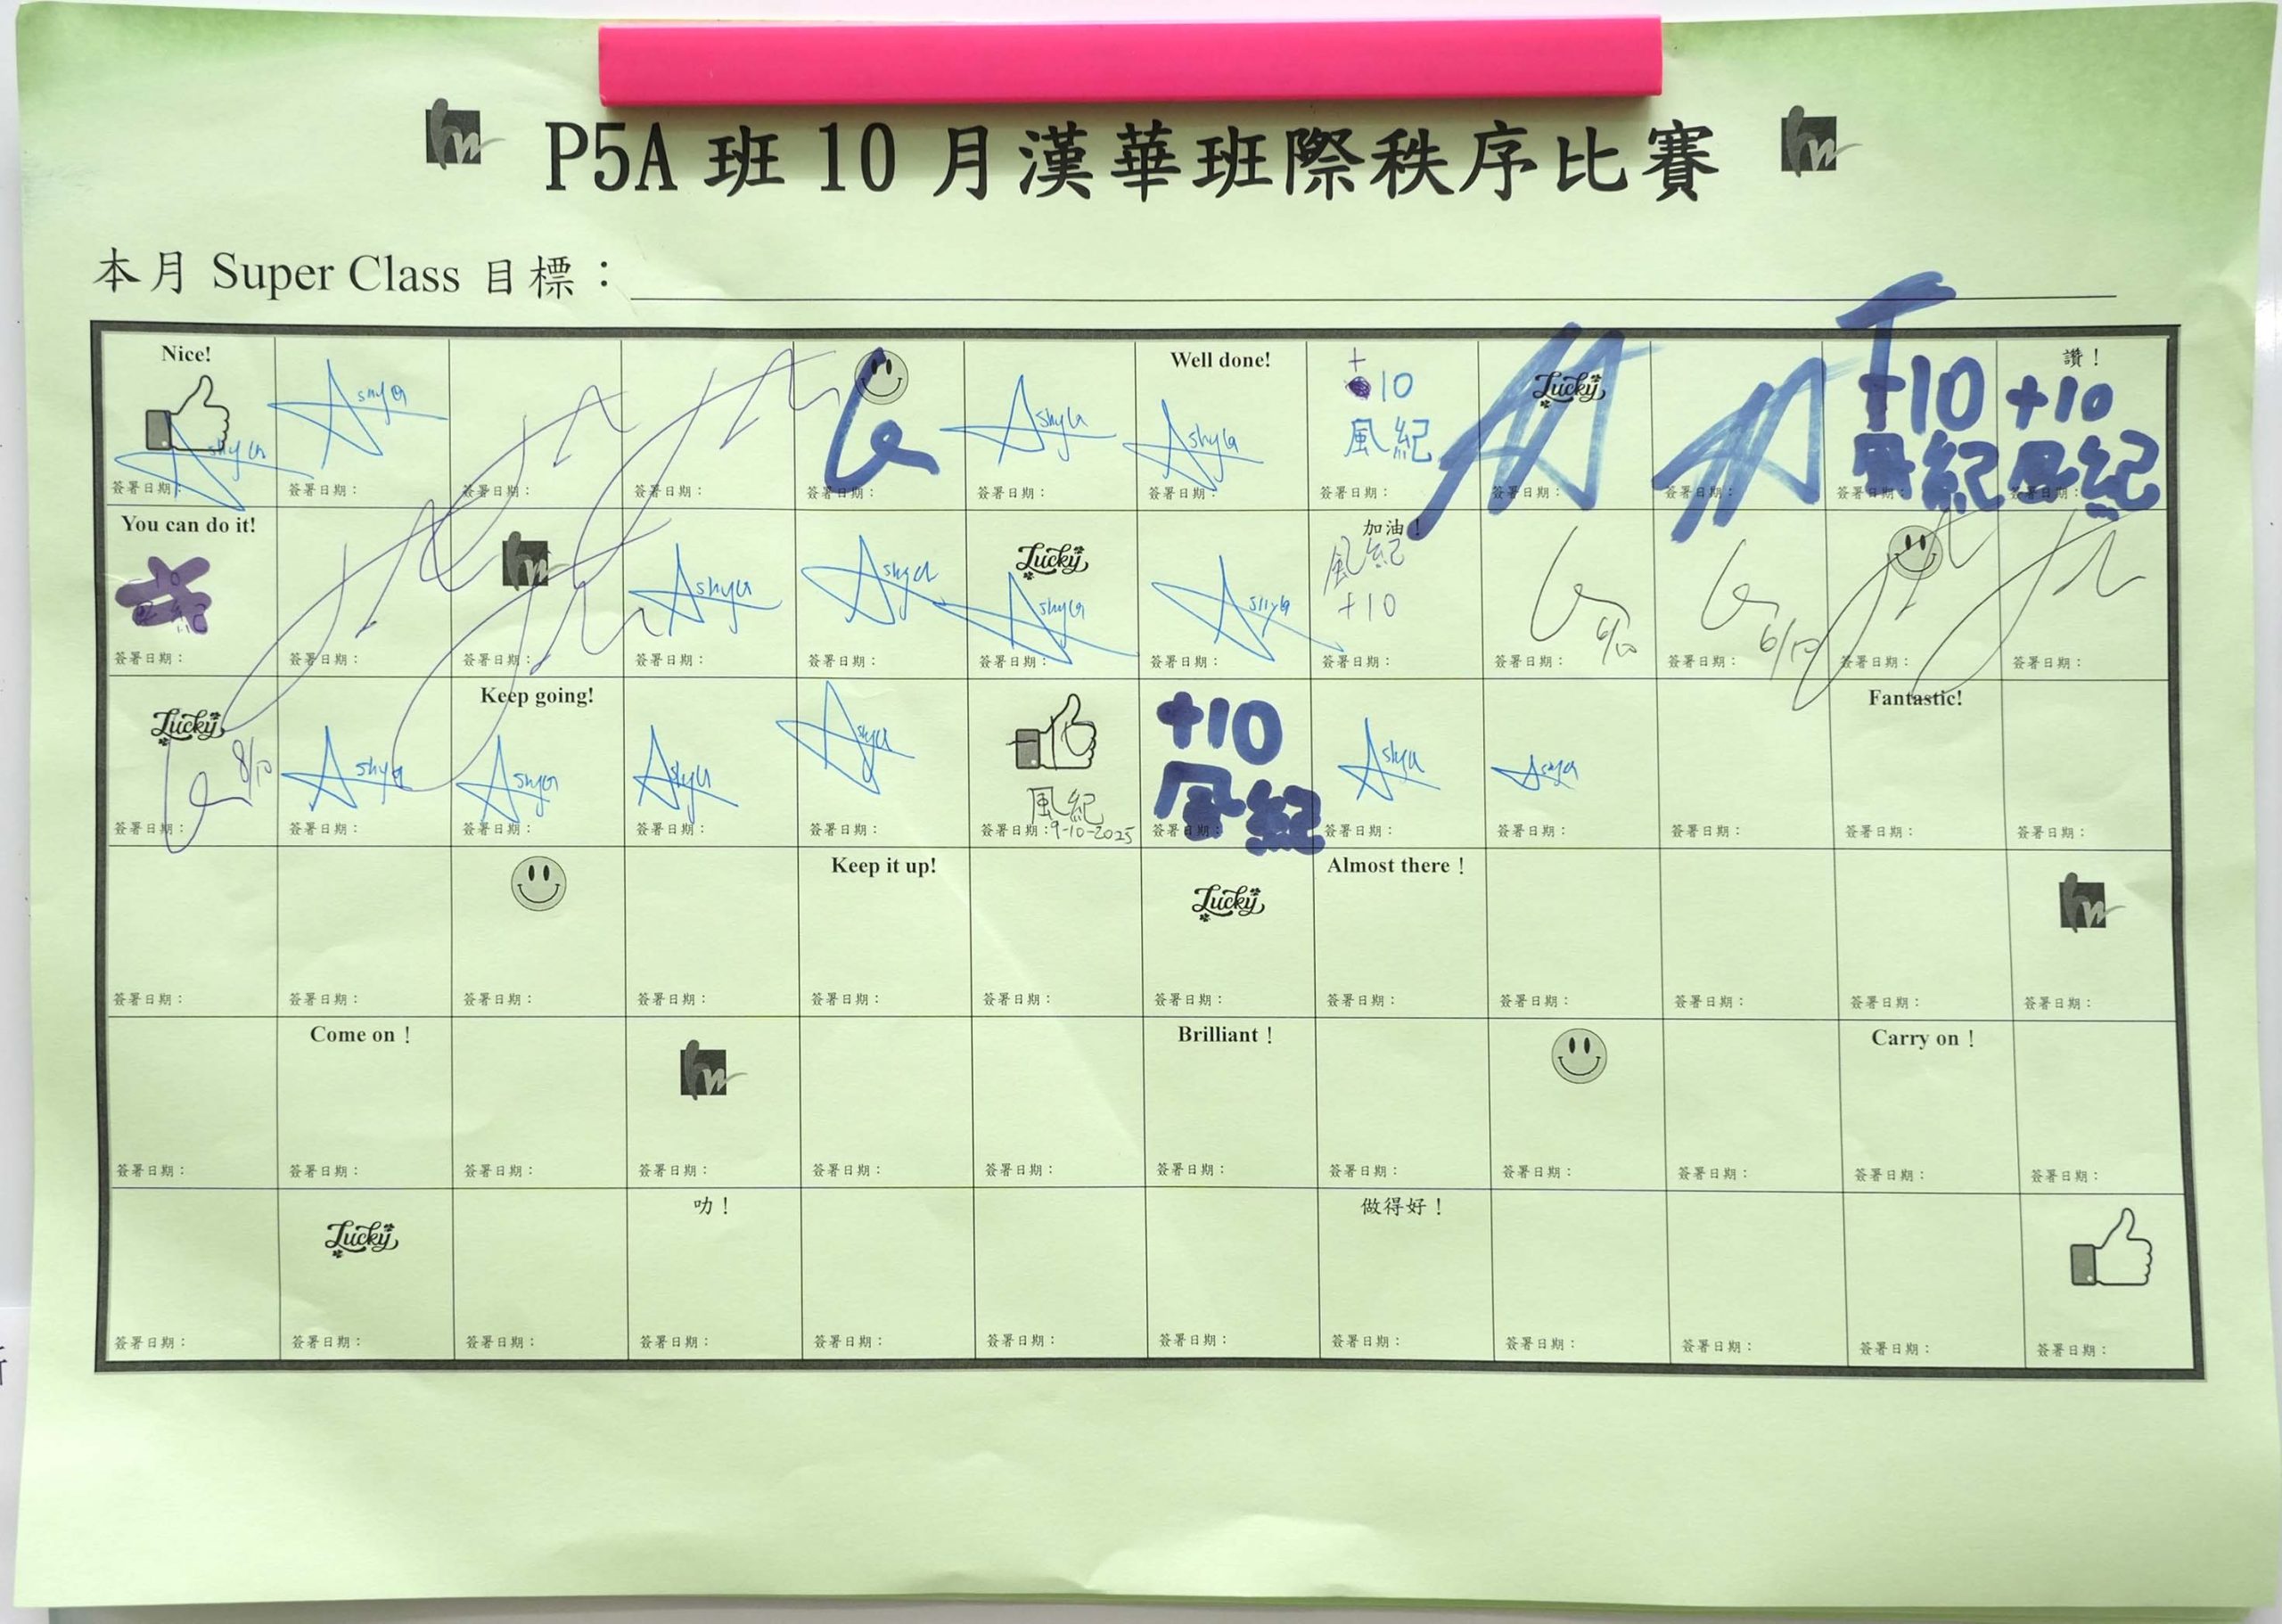 P5A 班 10 月漢華班際秩序比賽
本月 Super Class 目標：
Nice! Well done! 讚！
Ashya Ashya Ashya Ashya +10 風紀 Lucky +10 風紀 +10 風紀
簽署日期： 簽署日期： 簽署日期： 簽署日期： 簽署日期： 簽署日期： 簽署日期： 簽署日期： 簽署日期： 簽署日期： 簽署日期： 簽署日期：
You can do it! 加油！
hw Ashya Ashya Lucky Ashya Ashya 風紀 +10 6/10 6/10
簽署日期： 簽署日期： 簽署日期： 簽署日期： 簽署日期： 簽署日期： 簽署日期： 簽署日期： 簽署日期： 簽署日期： 簽署日期： 簽署日期：
Keep going! Fantastic!
Lucky 8/10 Ashya Ashya Ashya Ashya 風紀 +10 風紀 Ashya Ashya
簽署日期： 簽署日期： 簽署日期： 簽署日期： 簽署日期： 簽署日期：9-10-2025 簽署日期： 簽署日期： 簽署日期： 簽署日期： 簽署日期： 簽署日期：
Keep it up! Almost there！
Lucky hw
簽署日期： 簽署日期： 簽署日期： 簽署日期： 簽署日期： 簽署日期： 簽署日期： 簽署日期： 簽署日期： 簽署日期： 簽署日期： 簽署日期：
Come on！ Brilliant！ Carry on！
hw
簽署日期： 簽署日期： 簽署日期： 簽署日期： 簽署日期： 簽署日期： 簽署日期： 簽署日期： 簽署日期： 簽署日期： 簽署日期： 簽署日期：
叻！ 做得好！
Lucky
簽署日期： 簽署日期： 簽署日期： 簽署日期： 簽署日期： 簽署日期： 簽署日期： 簽署日期： 簽署日期： 簽署日期： 簽署日期： 簽署日期：